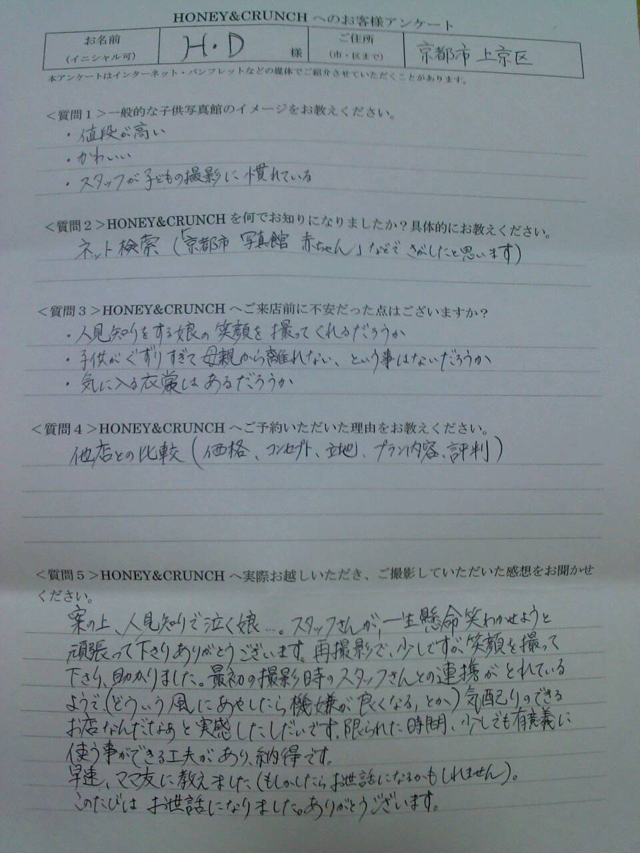 HONEY&CRUNCH へのお客様アンケート
お名前
(イニシャル可)
H・D 様
ご住所
(市・区まで)
京都市 上京区
本アンケートはインターネット・パンフレットなどの媒体でご紹介させていただくことがあります。
＜質問1＞一般的な子供写真館のイメージをお教えください。
・値段が高い
・かわいい
・スタッフが子どもの撮影に慣れている
＜質問2＞HONEY&CRUNCH を何でお知りになりましたか？具体的にお教えください。
ネット検索(「京都市 写真館 赤ちゃん」などでさがしたと思います)
＜質問3＞HONEY&CRUNCH へご来店前に不安だった点はございますか？
・人見知りをする娘の笑顔を撮ってくれるだろうか
・子供がぐずりすぎて母親から離れない、という事はないだろうか
・気に入る衣裳はあるだろうか
＜質問4＞HONEY&CRUNCH へご予約いただいた理由をお教えください。
他店との比較(価格、コンセプト、立地、プラン内容、評判)
＜質問5＞HONEY&CRUNCH へ実際お越しいただき、ご撮影していただいた感想をお聞かせ
ください。
案の上、人見知りで泣く娘…。スタッフさんが、一生懸命笑わせようと
頑張って下さりありがとうございます。再撮影で、少しですが笑顔を撮って
下さり、助かりました。最初の撮影時のスタッフさんとの連携がとれている
ようで(どういう風にあやしたら機嫌が良くなる、とか)気配りのできる
お店なんだなあと実感したしだいです。限られた時間、少しでも有意義に
使う事ができる工夫があり、納得です。
早速、ママ友に教えました(もしかしたらお世話になるかもしれません)。
このたびは お世話になりました。ありがとうございます。